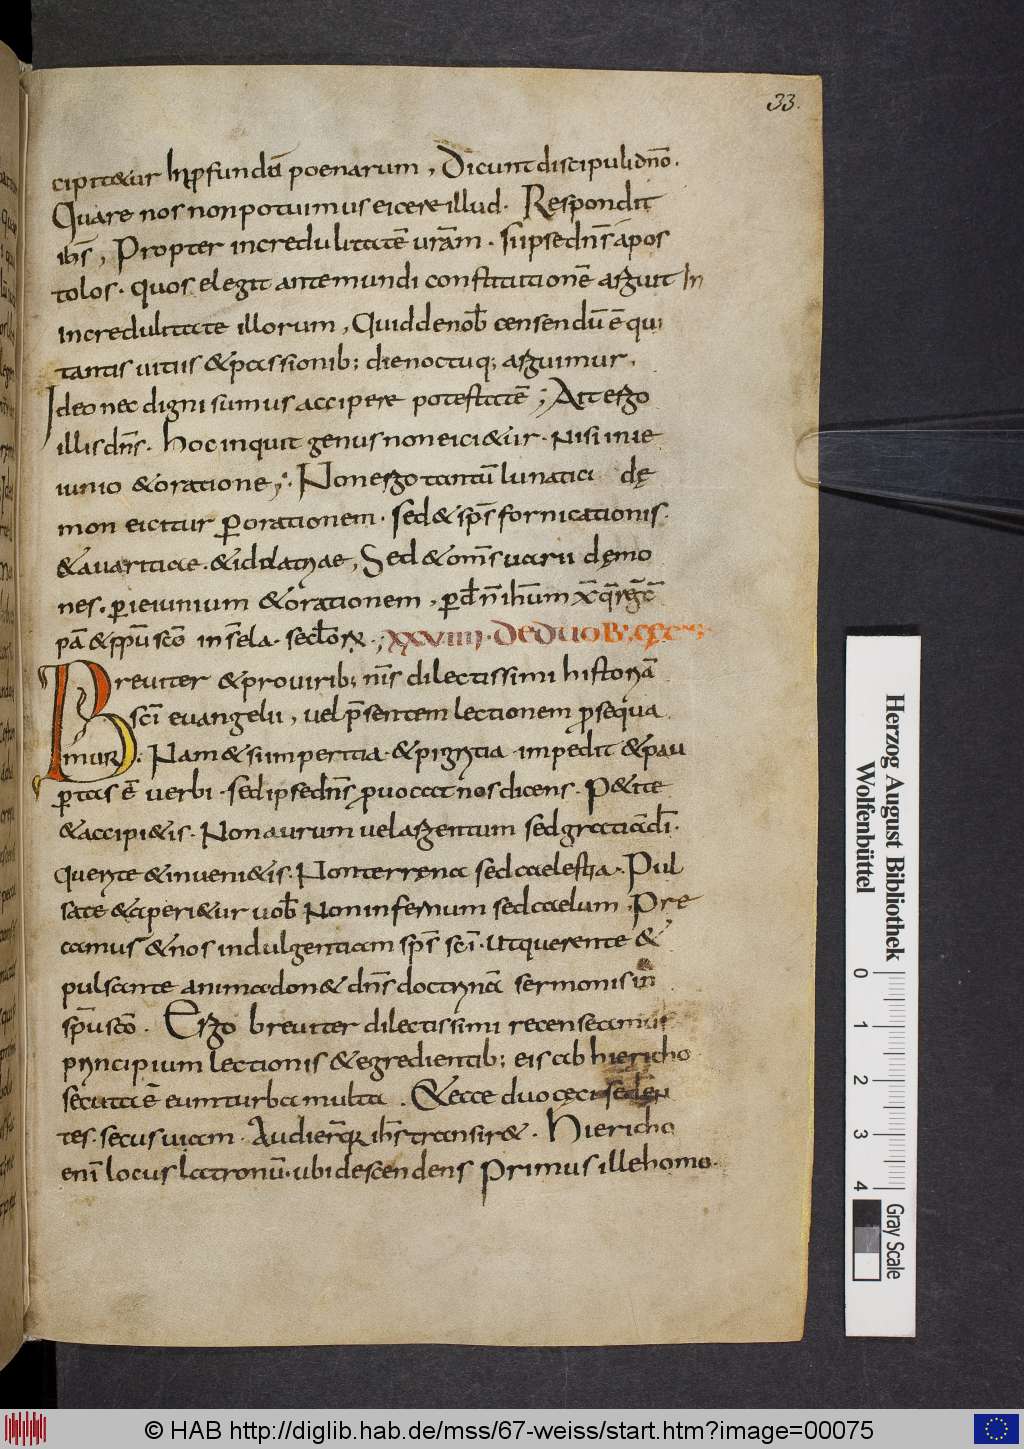 33.
cipit&ur In ꝓfundū poenarum, Dicunt discipuli dn̄o.
Quare nos non potuimus eicere illud. Respondit
ih̄s, Propter incredulitatē ur̄am. si ipse dn̄s apos
tolos. quos elegit ante mundi constitutionē arguit In
incredulitate illorum, Quid de nob̄ censendū ē qui
tantis uitiis & passionib; die noctuq; arguimur,
Ideo nec digni sumus accipere potestatē; At ergo
illis dn̄s. hoc inquit genus non eici&ur. Nisi in ie
iunio & oratione; Non ergo tantū lunatici dę
mon eicitur ꝑ orationem. sed & sp̄s fornicationis.
& auaritiae. & idolatriae, Sed & om̄s uarii dęmo
nes. ꝑ ieiunium & orationem, ꝑ dn̄m ih̄um xp̄
pā & sp̄u sc̄o in sc̄la. scl̄orꝝ; XXVIIII. De duob; cęcis
Breuiter & pro uirib; nr̄is dilectissimi historiā
sc̄i euangelii, uel p̄sentem lectionem ꝓsequa
mur. Nam & si imperitia. & pigritia impedit & pau
ꝑtas ē uerbi. sed ipse dn̄s ꝓuocat nos dicens. P&ite
& accipi&is. Non aurum uel argentum sed gratia di̅.
Querite & inueni&is. Non terrena sed caelestia. Pul
sate & aperi&ur uob̄ Non infernum sed caelum. Pre
camus & nos indulgentiam sp̄s sc̄i. ut querente &
pulsante anima don& dn̄s doctrinā sermonis in
sp̄u sc̄o. Ergo breuiter dilectissimi recenseamus
principium lectionis & egredientib; eis ab hiericho
secuta ē eum turba multa. & ecce duo cęci seden
tes. secus uiam. Audier̄q ih̄s transir&. Hiericho
eni̅ locus latronū. ubi descendens primus ille homo.
Herzog August Bibliothek
Wolfenbüttel
0 1 2 3 4
Gray Scale
© HAB http://diglib.hab.de/mss/67-weiss/start.htm?image=00075